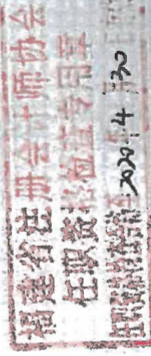 福建省注册会计师协会
任职资格检查专用章
2020 4 30